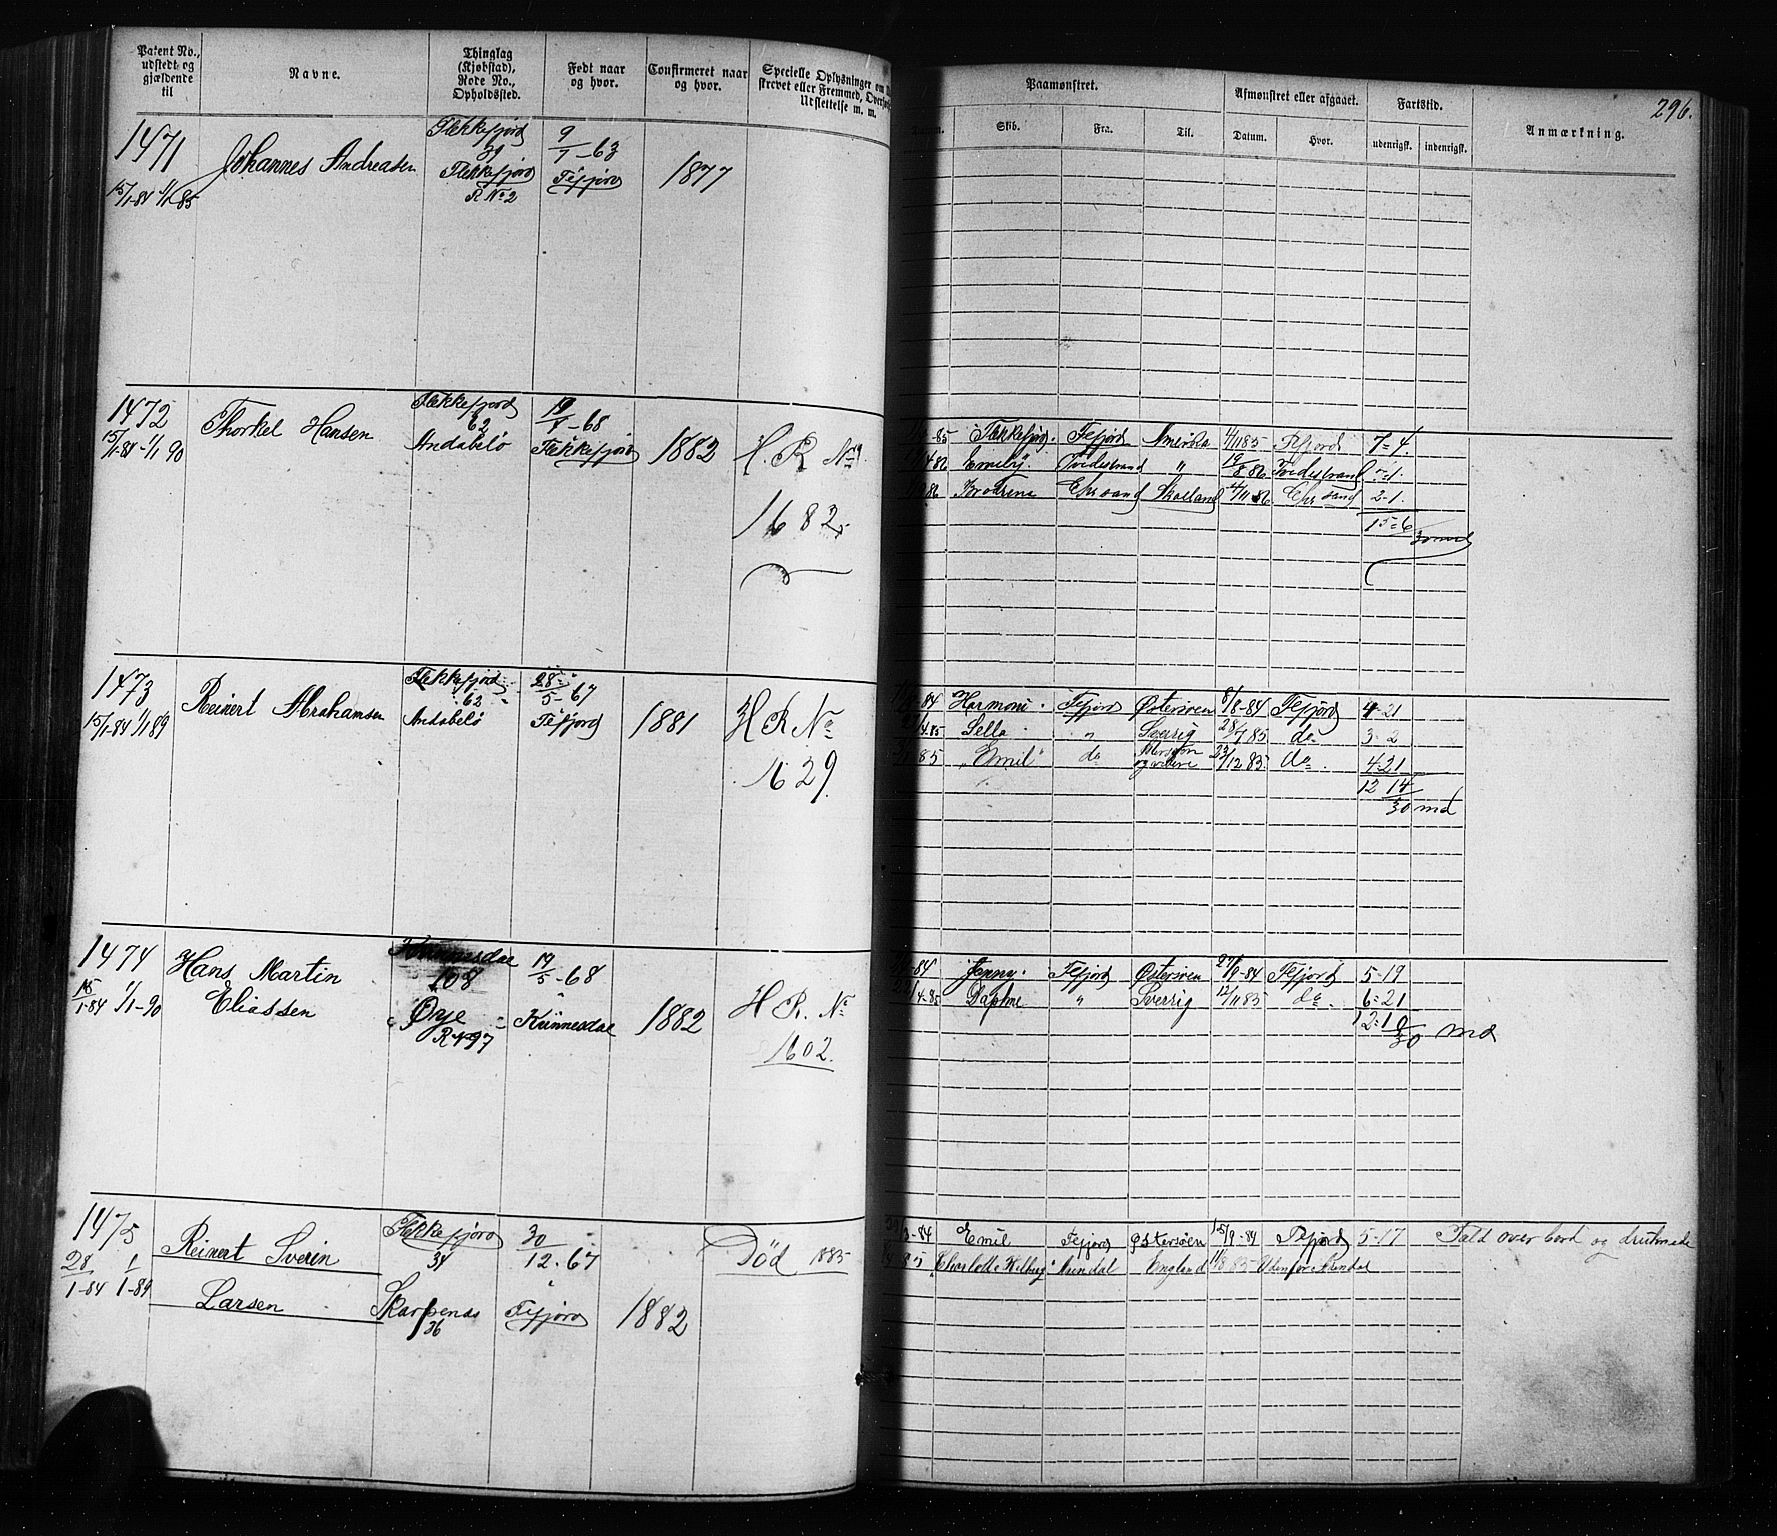 Patent No., udstedt og gjældende til
Navne.
Thinglag (Kjøbstad), Rode No., Opholdssted.
Født naar og hvor.
Confirmeret naar og hvor.
Specielle Oplysninger om
strevet eller Fremmed,
Udslettelse m. m.
Paamønstret.
Skib.
Fra.
Til.
Afmønstret eller afgaaet.
Datum.
Hvor.
Fartstid.
udenrigsk.
indenrigsk.
Anmærkning.
296.
1471
15/1-84 1/1 85
Johannes Andreasen
Flekkefjord
Flekkefjord
R No 2
9/7-63
Fefjord
1877
1472
15/1-84 1/1 90
Thorkel Hansen
Flekkefjord
62
Andabelø
Flekkefjord
1882
H. R No
1682
85 Flekkefjord. Fefjord Amerika 4/11 85 Fefjord 7-4.
Tvedestrand " 19/8 86 Tvedestrand
86 Brødrene Chrsand 4/11 86 Chrsand 2-1.
15-6
1473
15/1-84 1/1 89
Reinert Abrahamsen
Flekkefjord
62
Andabelø
28/5-67
Fefjord
1881
H R No
1629
84 Harmoni Fefjord Østersøen 8/8-84 Fefjord 4-21
4.85 Sella " Sverrig 28/7 85 do 3-2
85 "Emil" do 23/12 85 do 4-21
12 14
30 md
1474
15/1-84 1/1-90
Hans Martin
Eliassen
108
Øye
R No 97
19/5-68
Kvinnesdal
1882
H R. No
1602.
84 Jenny. Fefjord Østersøen 27/8-84 Fefjord 5-19
4-85 Daphne " Sverrig 12/11 85 do 6-21
12-10
30 md
1475
28/1-84 1/1-89
Reinert Sverin
Larsen
Flekkefjord
34
Skarpenes
36
30/12-67
Fefjord
1882
Død 1885
3-84 Emil Fefjord Østersøen 15/9-84 Fefjord 5-17 Fald over bord og druknede
85 Arendal England 85 Udenfor Arendal